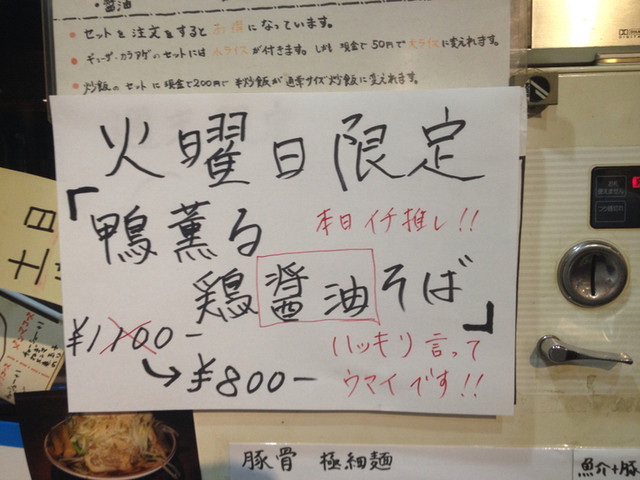 ・醤油
・セットを注文をするとお得になっています。
・ギョーザ・カラアゲのセットには小ライスが付きます。しかも現金で50円で大ライスに変えれます。
・炒飯のセットに現金で200円で半炒飯が通常サイズ炒飯に変えれます。
火曜日限定
「鴨薫る
本日イチ推し!!
鶏醤油そば」
¥1100-
→¥800-
ハッキリ言って
ウマイです!!
土日
豚骨 極細麺
魚介+豚